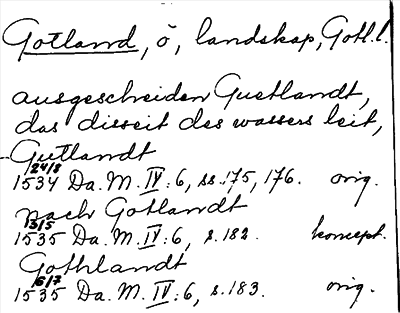 Gotland, ö, landskap, Gotl. l.
ausgescheiden Guetlandt,
das disseit des wassers leit,
Gutlandt
24/8
1534 Da. M. IV:6, ss. 175, 176. orig.
nach Gotlandt
3/5
1535 Da. M. IV:6, s. 182. koncept.
Gothlandt
6/7
1535 Da. M. IV:6, s. 183. orig.